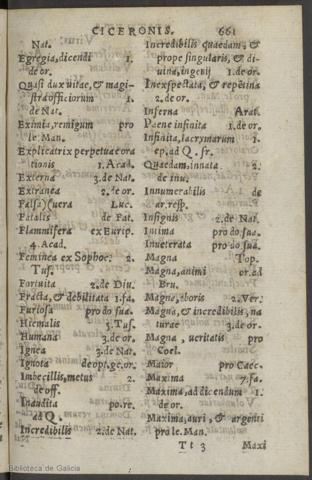 CICERONIS. 661
Nat.
Egregia, dicendi 1.
de or.
Quasi dux uitæ, & magi-
stra officiorum 1.
de Nat.
Eximia, remigum pro
le. Man.
Explicatrix perpetuæ ora
tionis 1. Acad.
Externa 3. de Nat.
Extranea 2. de or.
Falsa)(uera Luc.
Fatalis de Fat.
Flammifera ex Eurip.
4. Acad.
Feminea ex Sophoc. 2.
Tus.
Fortuita 2. de Diu.
Fracta, & debilitata 1. fa.
Furiosa pro do. sua.
Hiemalis 5. Tus.
Humana 3. de or.
Ignea 3. de Nat.
Ignota de opt. ge. or.
Imbecillis, metus 2.
de off.
Inaudita po. re.
ad Q.
Incredibilis 2. de Nat.
Incredibilis quædam, &
prope singularis, & di-
uina, ingenij 1. de or.
Inexspectata, & repētina
2. de or.
Inferna Arat.
Pæne infinita 1. de or.
Infinita, lacrymarum 1.
ep. ad Q. fr.
Quædam, innata 2.
de inu.
Innumerabilis de
ar. resp.
Insignis 2. de Nat.
Intima pro do. sua.
Inueterata pro do. sua.
Magna Top.
Magna, animi or. ad
Bru.
Magna, eboris 2. Ver.
Magna, & incredibilis, na
turæ 3. de or.
Magna, ueritatis pro
Coel.
Maior pro Cæc.
Maxima 7. fa.
Maxima, ad dicendum 1.
de or.
Maxima, auri, & argenti
pro le. Man.
Tt 3 Maxi
Biblioteca de Galicia